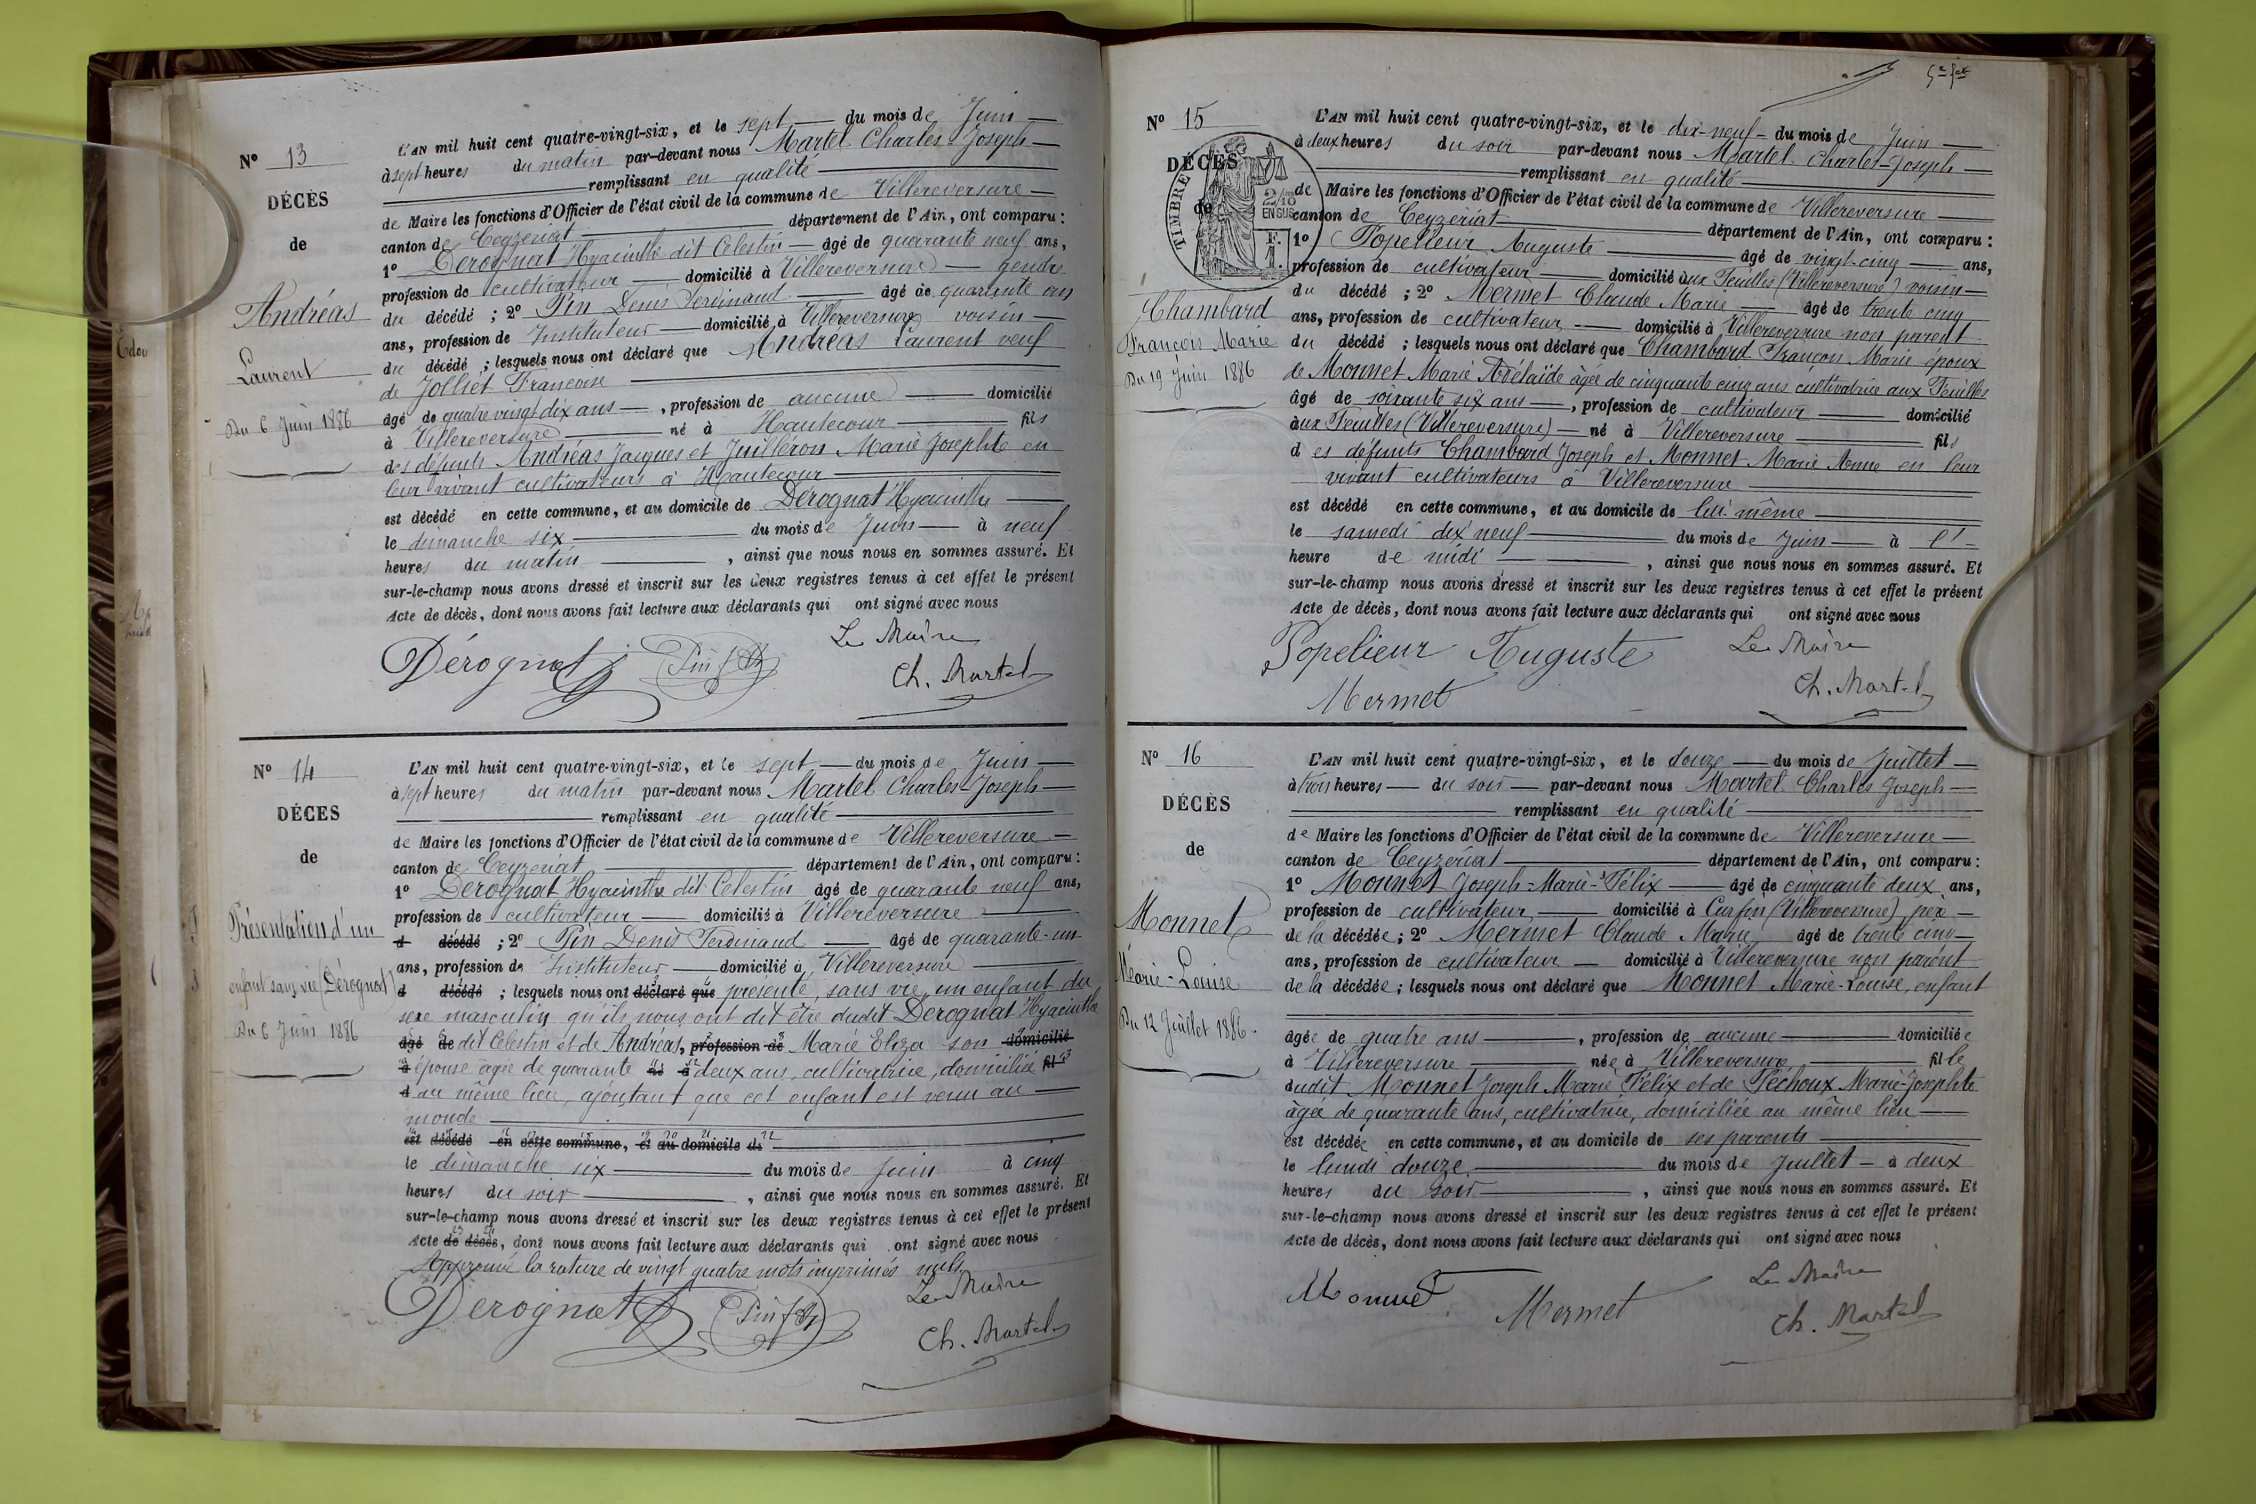 N° 13
DÉCÈS
de
Andréas
Laurent
Du 6 Juin 1886
L'AN mil huit cent quatre-vingt-six, et le sept du mois de Juin
à sept heures du matin par-devant nous Martel Charles-Joseph
remplissant en qualité
de Maire les fonctions d'Officier de l'état civil de la commune de Villereversure
canton de Ceyzeriat département de l'Ain, ont comparu :
1° Dérognat Hyacinthe dit Célestin âgé de quarante neuf ans,
profession de cultivateur domicilié à Villereversure gendre
du décédé ; 2° Pin Denis Ferdinand âgé de quarante un
ans, profession de Instituteur domicilié à Villereversure voisin
du décédé ; lesquels nous ont déclaré que Andréas Laurent veuf
de Jolliet Françoise
âgé de quatre vingt dix ans, profession de aucune domicilié
à Villereversure né à Hautecour fils
des défunts Andréas Jacques et Juilléron Marie Josephte en
leur vivant cultivateurs à Hautecour
est décédé en cette commune, et au domicile de Dérognat Hyacinthe
le dimanche six du mois de Juin à neuf
heures du matin, ainsi que nous nous en sommes assuré. Et
sur-le-champ nous avons dressé et inscrit sur les deux registres tenus à cet effet le présent
Acte de décès, dont nous avons fait lecture aux déclarants qui ont signé avec nous
Le Maire
Dérognat Pin f d Ch. Martel
N° 14
DÉCES
de
Présentation d'un
enfant sans vie (Dérognat)
Du 6 Juin 1886
L'AN mil huit cent quatre-vingt-six, et le sept du mois de Juin
à sept heures du matin par-devant nous Martel Charles-Joseph
remplissant en qualité
de Maire les fonctions d'Officier de l'état civil de la commune de Villereversure
canton de Ceyzeriat département de l'Ain, ont comparu :
1° Dérognat Hyacinthe dit Célestin âgé de quarante neuf ans,
profession de cultivateur domicilié à Villereversure
d décédé ; 2° Pin Denis Ferdinand âgé de quarante-un
ans, profession de Instituteur domicilié à Villereversure
d décédé ; lesquels nous ont déclaré que présenté, sans vie, un enfant du
sexe masculin qu'ils nous ont dit être dudit Dérognat Hyacinthe
âgé de dit Célestin et de Andréas, profession de Marie Eliza son domicilié
à épouse âgée de quarante né à deux ans, cultivatrice, domiciliée fil
d au même lieu, ajoutant que cet enfant est venu au
monde
est décédé en cette commune, et au domicile de
le dimanche six du mois de Juin à cinq
heures du soir, ainsi que nous nous en sommes assuré. Et
sur-le-champ nous avons dressé et inscrit sur les deux registres tenus à cet effet le présent
Acte de décès, dont nous avons fait lecture aux déclarants qui ont signé avec nous
Approuvé la rature de vingt quatre mots imprimés nuls
Le Maire
Dérognat Pin f d Ch. Martel
N° 15
DÉCÈS
de
TIMBRE
2/10
EN SUS
F.
1.
Chambard
François Marie
Du 19 Juin 1886
L'AN mil huit cent quatre-vingt-six, et le dix-neuf du mois de Juin
à deux heures du soir par-devant nous Martel Charles-Joseph
remplissant en qualité
de Maire les fonctions d'Officier de l'état civil de la commune de Villereversure
canton de Ceyzeriat département de l'Ain, ont comparu :
1° Popelieur Auguste âgé de vingt-cinq ans,
profession de cultivateur domicilié aux Feuilles (Villereversure) voisin
du décédé ; 2° Mermet Claude Marie âgé de trente cinq
ans, profession de cultivateur domicilié à Villereversure non parent
du décédé ; lesquels nous ont déclaré que Chambard François Marie époux
de Monnet Marie Adélaïde âgée de cinquante cinq ans cultivatrice aux Feuilles
âgé de soixante six ans, profession de cultivateur domicilié
aux Feuilles (Villereversure) né à Villereversure fils
des défunts Chambard Joseph et Monnet Marie Anne en leur
vivant cultivateurs à Villereversure
est décédé en cette commune, et au domicile de lui-même
le samedi dix neuf du mois de Juin à l'
heure de midi, ainsi que nous nous en sommes assuré. Et
sur-le-champ nous avons dressé et inscrit sur les deux registres tenus à cet effet le présent
Acte de décès, dont nous avons fait lecture aux déclarants qui ont signé avec nous
Popelieur Auguste Le Maire
Mermet Ch. Martel
N° 16
DÉCÈS
de
Monnet
Marie-Louise
Du 12 Juillet 1886.
L'AN mil huit cent quatre-vingt-six, et le douze du mois de Juillet
à trois heures du soir par-devant nous Martel Charles Joseph
remplissant en qualité
de Maire les fonctions d'Officier de l'état civil de la commune de Villereversure
canton de Ceyzériat département de l'Ain, ont comparu :
1° Monnet Joseph-Marie-Félix âgé de cinquante deux ans,
profession de cultivateur domicilié à Curfin (Villereversure), père
de la décédée ; 2° Mermet Claude Marie âgé de trente cinq
ans, profession de cultivateur domicilié à Villereversure non parent
de la décédée ; lesquels nous ont déclaré que Monnet Marie-Louise, enfant
âgée de quatre ans, profession de aucune domiciliée
à Villereversure née à Villereversure fille
dudit Monnet Joseph Marie Félix et de Péchoux Marie-Josephte
âgée de quarante ans, cultivatrice, domiciliée au même lieu
est décédée en cette commune, et au domicile de ses parents
le lundi douze du mois de Juillet à deux
heures du soir, ainsi que nous nous en sommes assuré. Et
sur-le-champ nous avons dressé et inscrit sur les deux registres tenus à cet effet le présent
Acte de décès, dont nous avons fait lecture aux déclarants qui ont signé avec nous
Monnet Mermet Le Maire
Ch. Martel